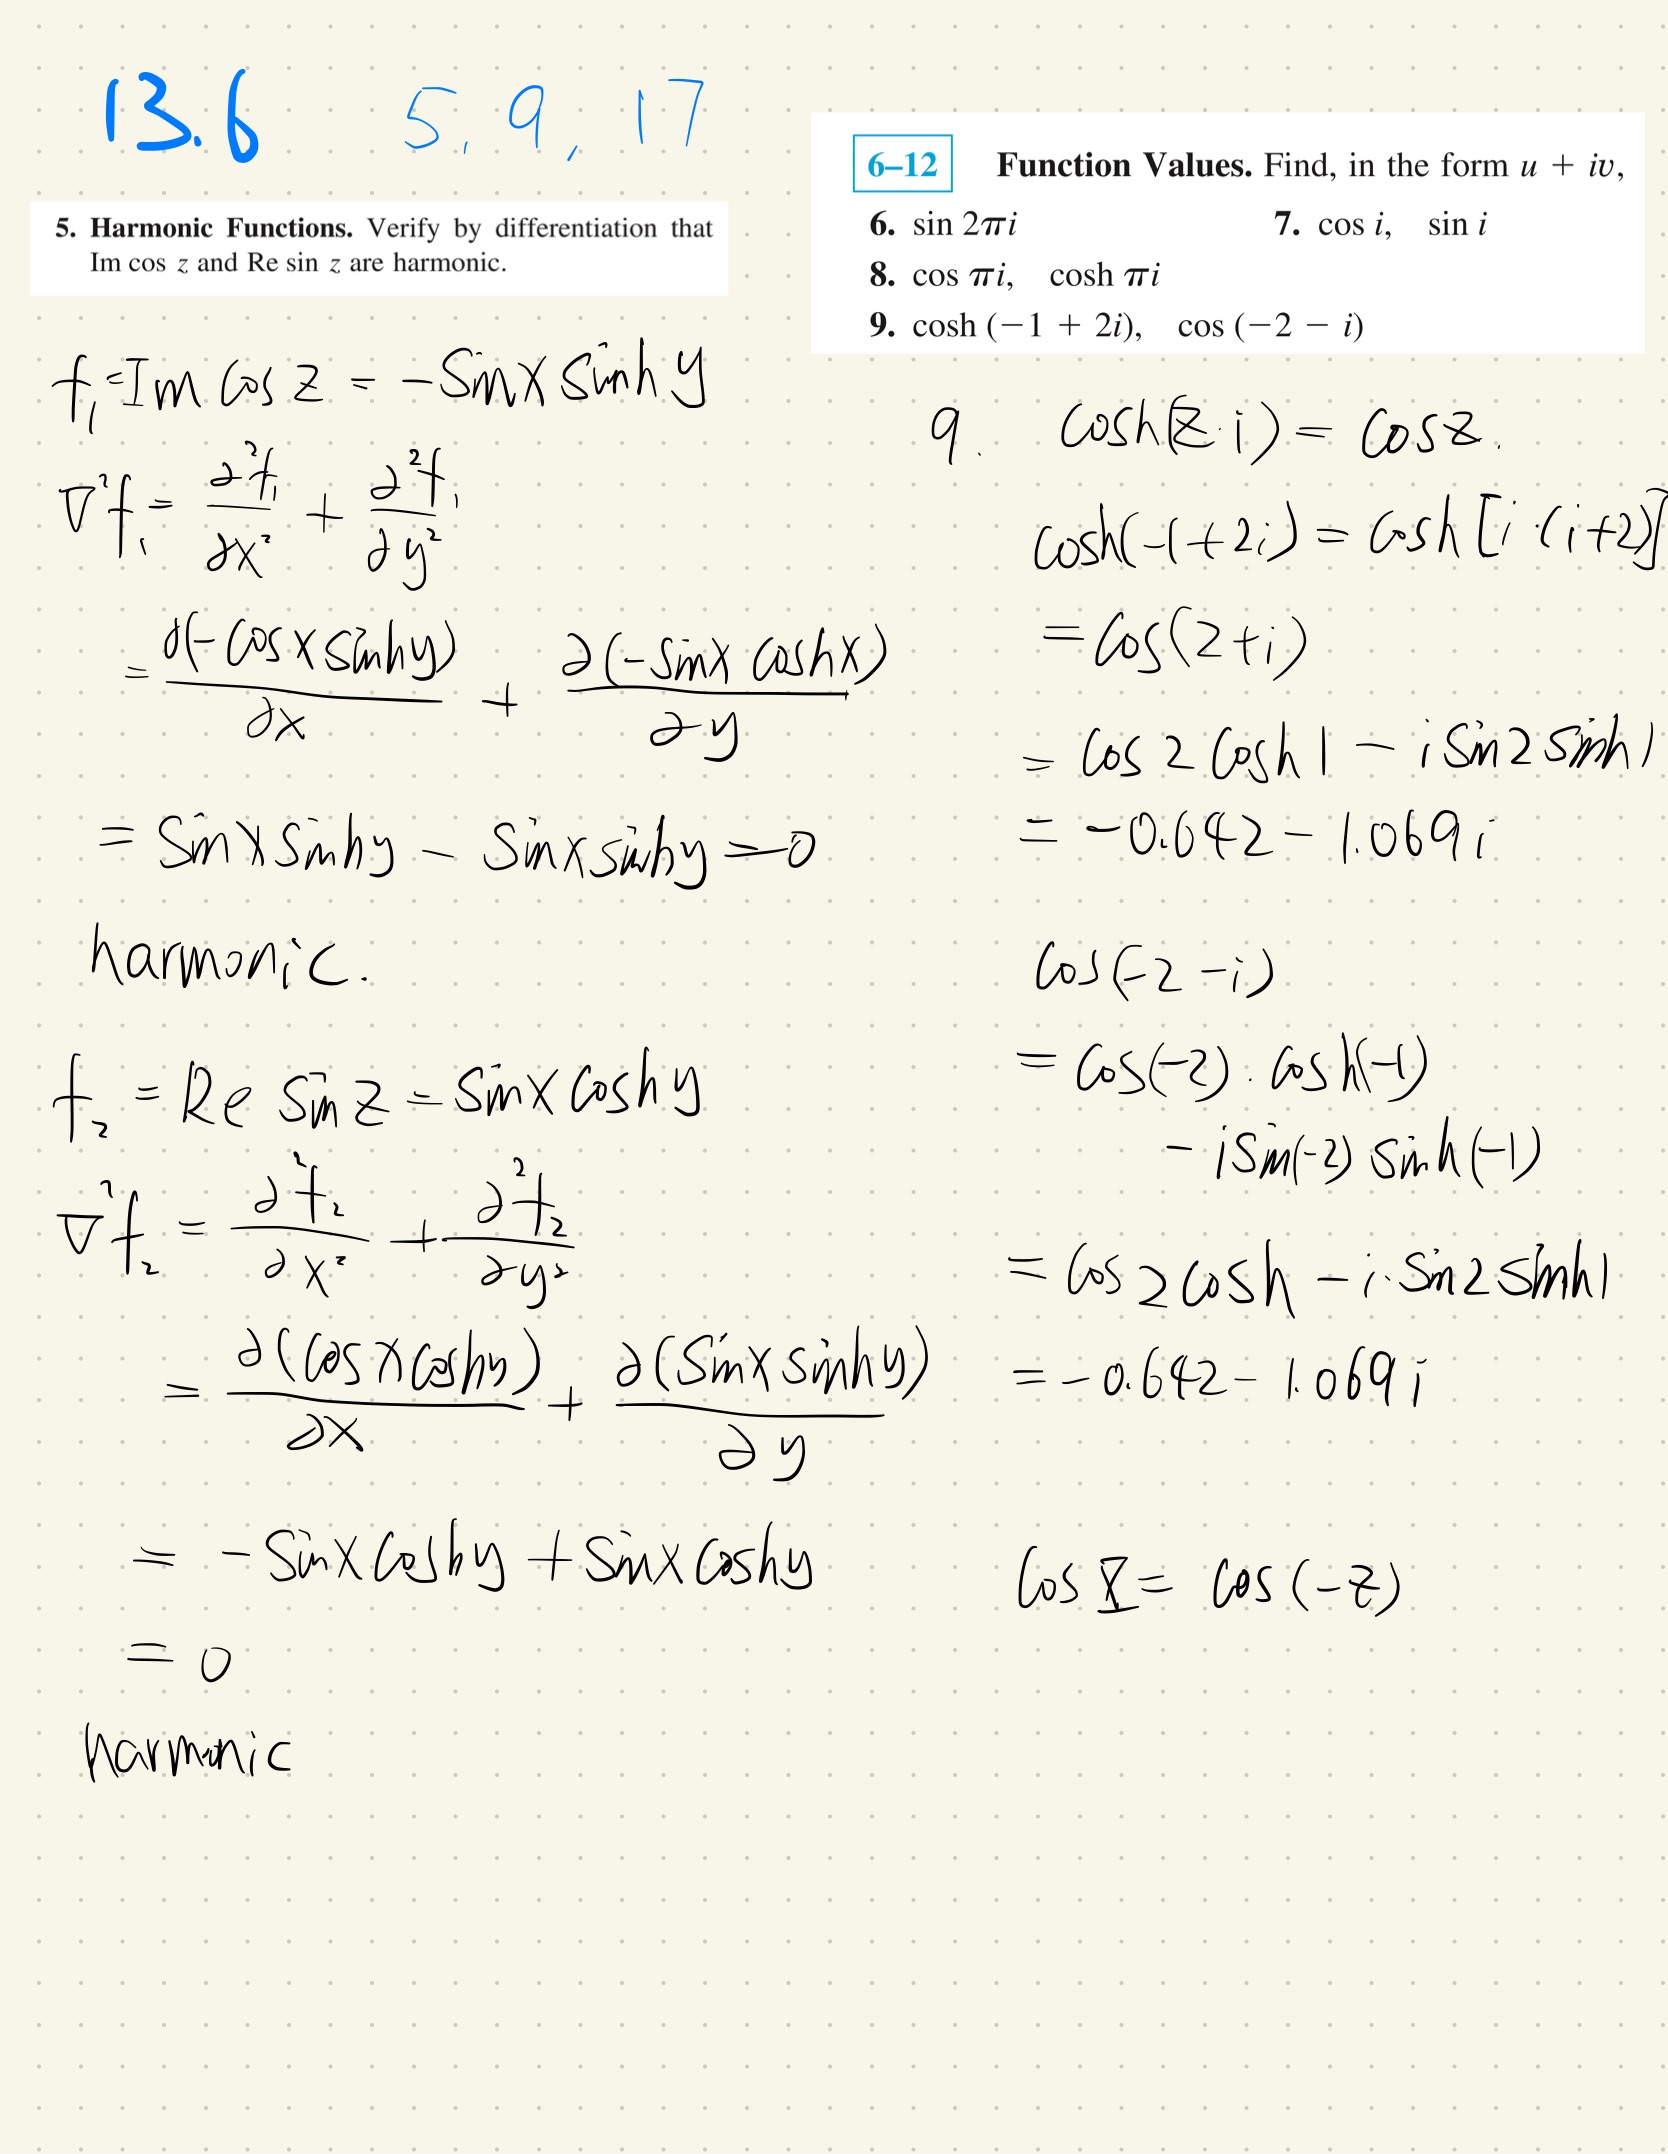 13.6 5, 9, 17
5. Harmonic Functions. Verify by differentiation that
Im cos z and Re sin z are harmonic.
f₁ = Im cos z = -sin x sinh y
∇²f₁ = ∂²f₁/∂x² + ∂²f₁/∂y²
= ∂(-cos x sinh y)/∂x + ∂(-sin x cosh x)/∂y
= sin x sinh y - sin x sinh y = 0
harmonic.
f₂ = Re sin z = sin x cosh y
∇²f₂ = ∂²f₂/∂x² + ∂²f₂/∂y²
= ∂(cos x cosh y)/∂x + ∂(sin x sinh y)/∂y
= -sin x cosh y + sin x cosh y
= 0
harmonic
6–12 Function Values. Find, in the form u + iv,
6. sin 2πi 7. cos i, sin i
8. cos πi, cosh πi
9. cosh (−1 + 2i), cos (−2 − i)
9. cosh(z·i) = cos z.
cosh(-1+2i) = cosh[i·(i+2)]
= cos(2+i)
= cos 2 cosh 1 - i sin 2 sinh 1
= -0.642 - 1.069i
cos(-2-i)
= cos(-2)·cosh(-1)
- i sin(-2) sinh(-1)
= cos 2 cosh - i·sin 2 sinh 1
= -0.642 - 1.069i
cos = cos(-z)